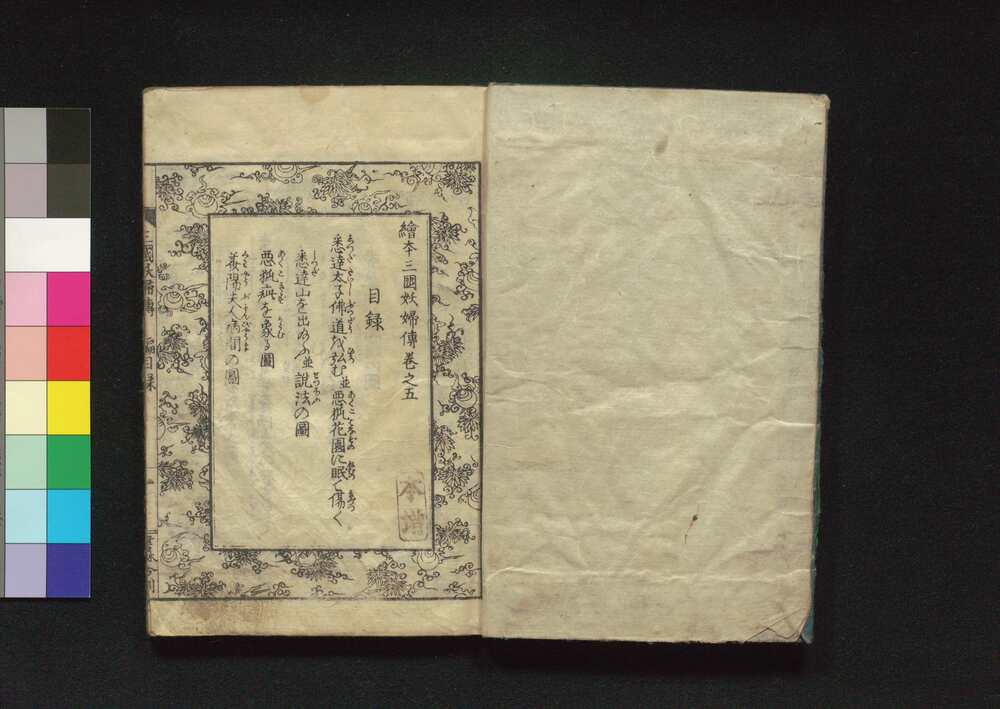 繪本三國妖婦傳巻之五
目録
悉達太子佛道を弘む並悪狐花園に眠て傷く
悉達山を出給ふ並說法の圖
悪狐疵を蒙る圖
華陽夫人病間の圖
三國妖婦傳
編目録